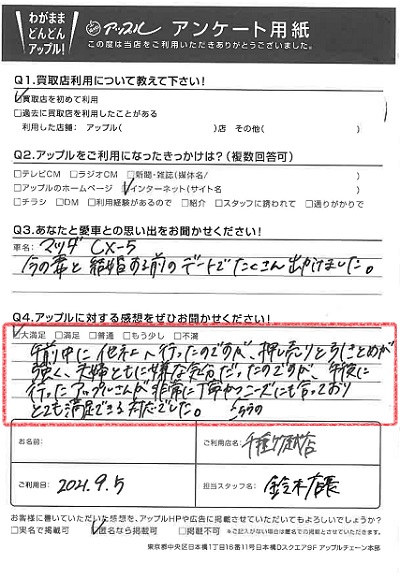 わがまま
どんどん
アップル!
アップル アンケート用紙
この度は当店をご利用いただきありがとうございました。
Q1.買取店利用について教えて下さい!
☑買取店を初めて利用
□過去に買取店を利用したことがある
利用した店舗: アップル( )店 その他( )
Q2.アップルをご利用になったきっかけは?(複数回答可)
□テレビCM □ラジオCM □新聞・雑誌(媒体名/ )
□アップルのホームページ ☑インターネット(サイト名 )
□チラシ □DM □利用経験があるので □紹介 □スタッフに誘われて □通りがかりで
Q3.あなたと愛車との思い出をお聞かせください!
車名: マツダ CX-5
今の妻と結婚する前のデートでたくさん出かけました。
Q4.アップルに対する感想をぜひお聞かせください!
☑大満足 □満足 □普通 □もう少し □不満
午前中に他社へ行ったのですが、押し売りと引きとめが
強く、夫婦ともに嫌な気分だったのですが、午後に
行ったアップルさんが非常に丁寧かつニーズにも合っており
とても満足できる対応でした。
お名前:
ご利用店名: 千種竹越店
ご利用日: 2021.9.5
担当スタッフ名: 鈴木店長
お客様に書いていただいた感想を、アップルHPや広告に掲載させていただいてもよろしいでしょうか?
□実名で掲載可 ☑匿名なら掲載可 □掲載不可 ※ご記入がない場合は匿名での掲載とさせていただきます。
東京都中央区日本橋1丁目16番11号日本橋Dスクエア9F アップルチェーン本部